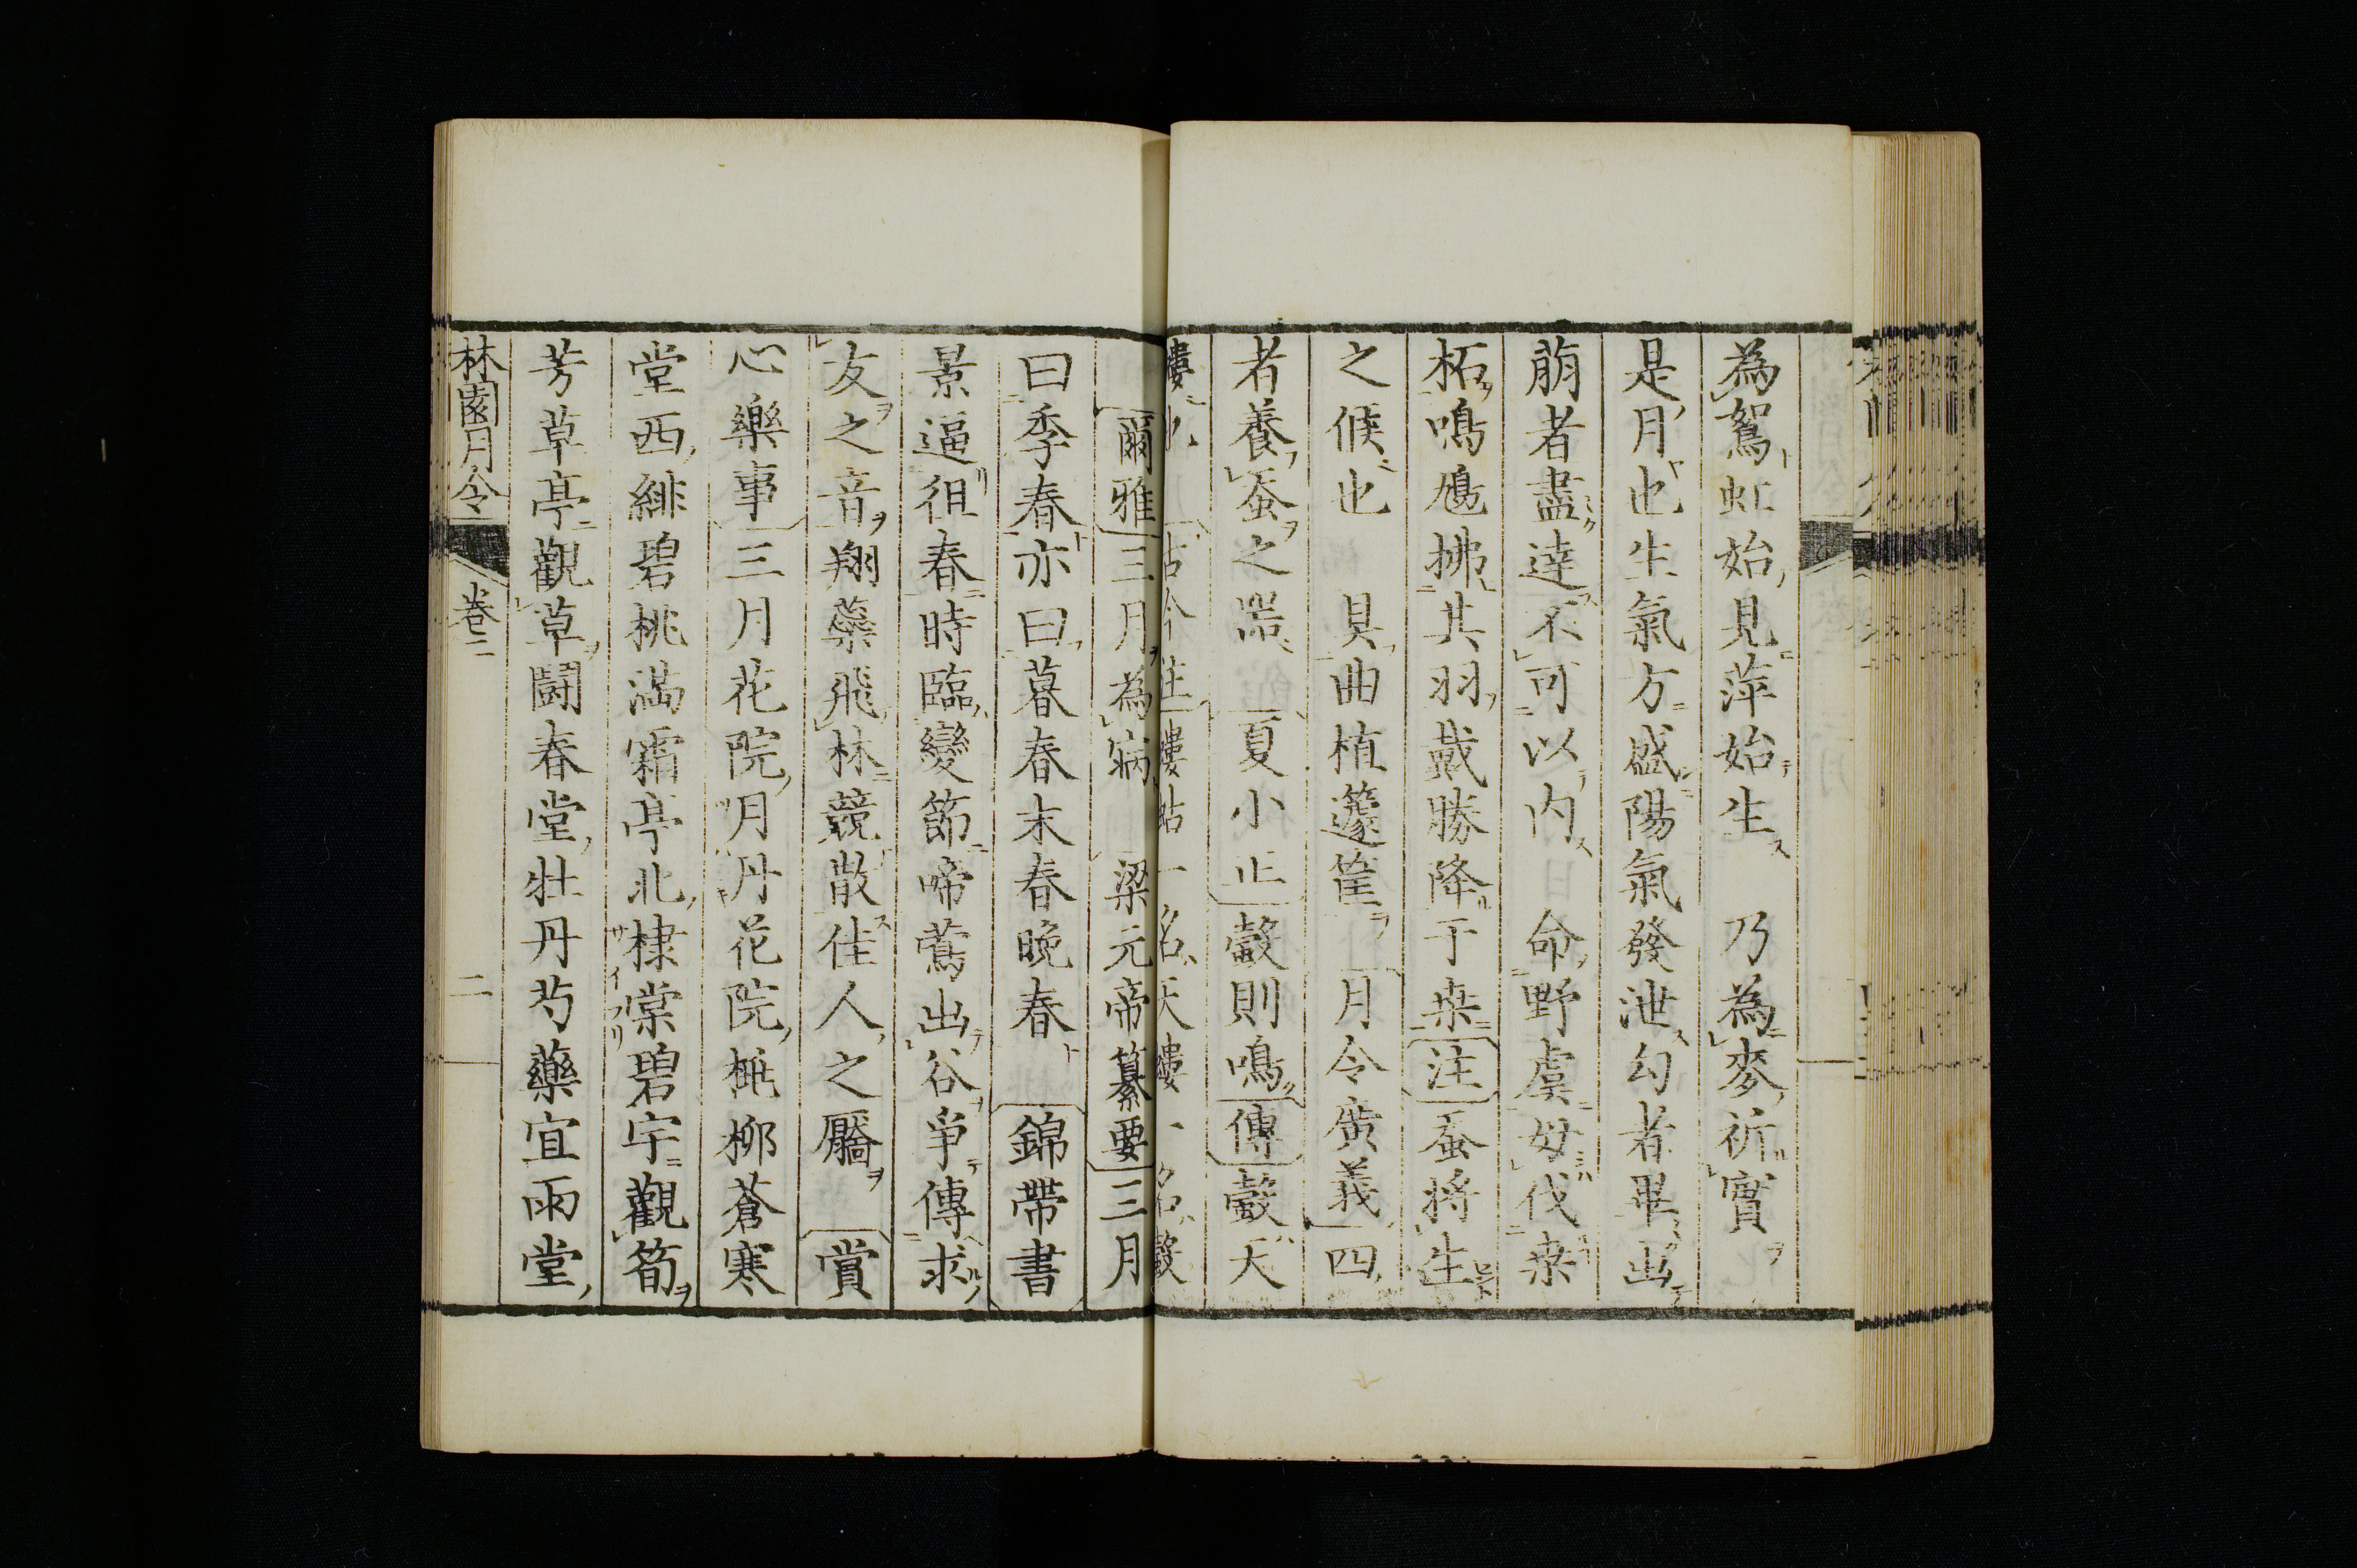 為鴽虹始見萍始生　乃為麥祈實
是月也生氣方盛陽氣發泄勾者畢出
萠者盡達不可以内　命野虞毋伐桒
柘鳴鳩拂其羽戴勝降于桒注蚕将生
之候也　具曲植籧筐　月令廣義四
者養蚕之器　夏小正鼜則鳴傳鼜天
螻也　古今註螻蛄一名天螻一名鼜
爾雅三月為寎　梁元帝纂要三月
曰季春亦曰暮春末春晩春　錦帶書
景逼徂春時臨變節啼鶯出谷爭傳求
友之音翔蘂飛林競散佳人之靨　賞
心樂事三月花院月丹花院桃柳蒼寒
堂西緋碧桃滿霜亭北棣棠碧宇觀筍
芳草亭觀草鬪春堂牡丹芍藥宜雨堂
林園月令　卷三　二